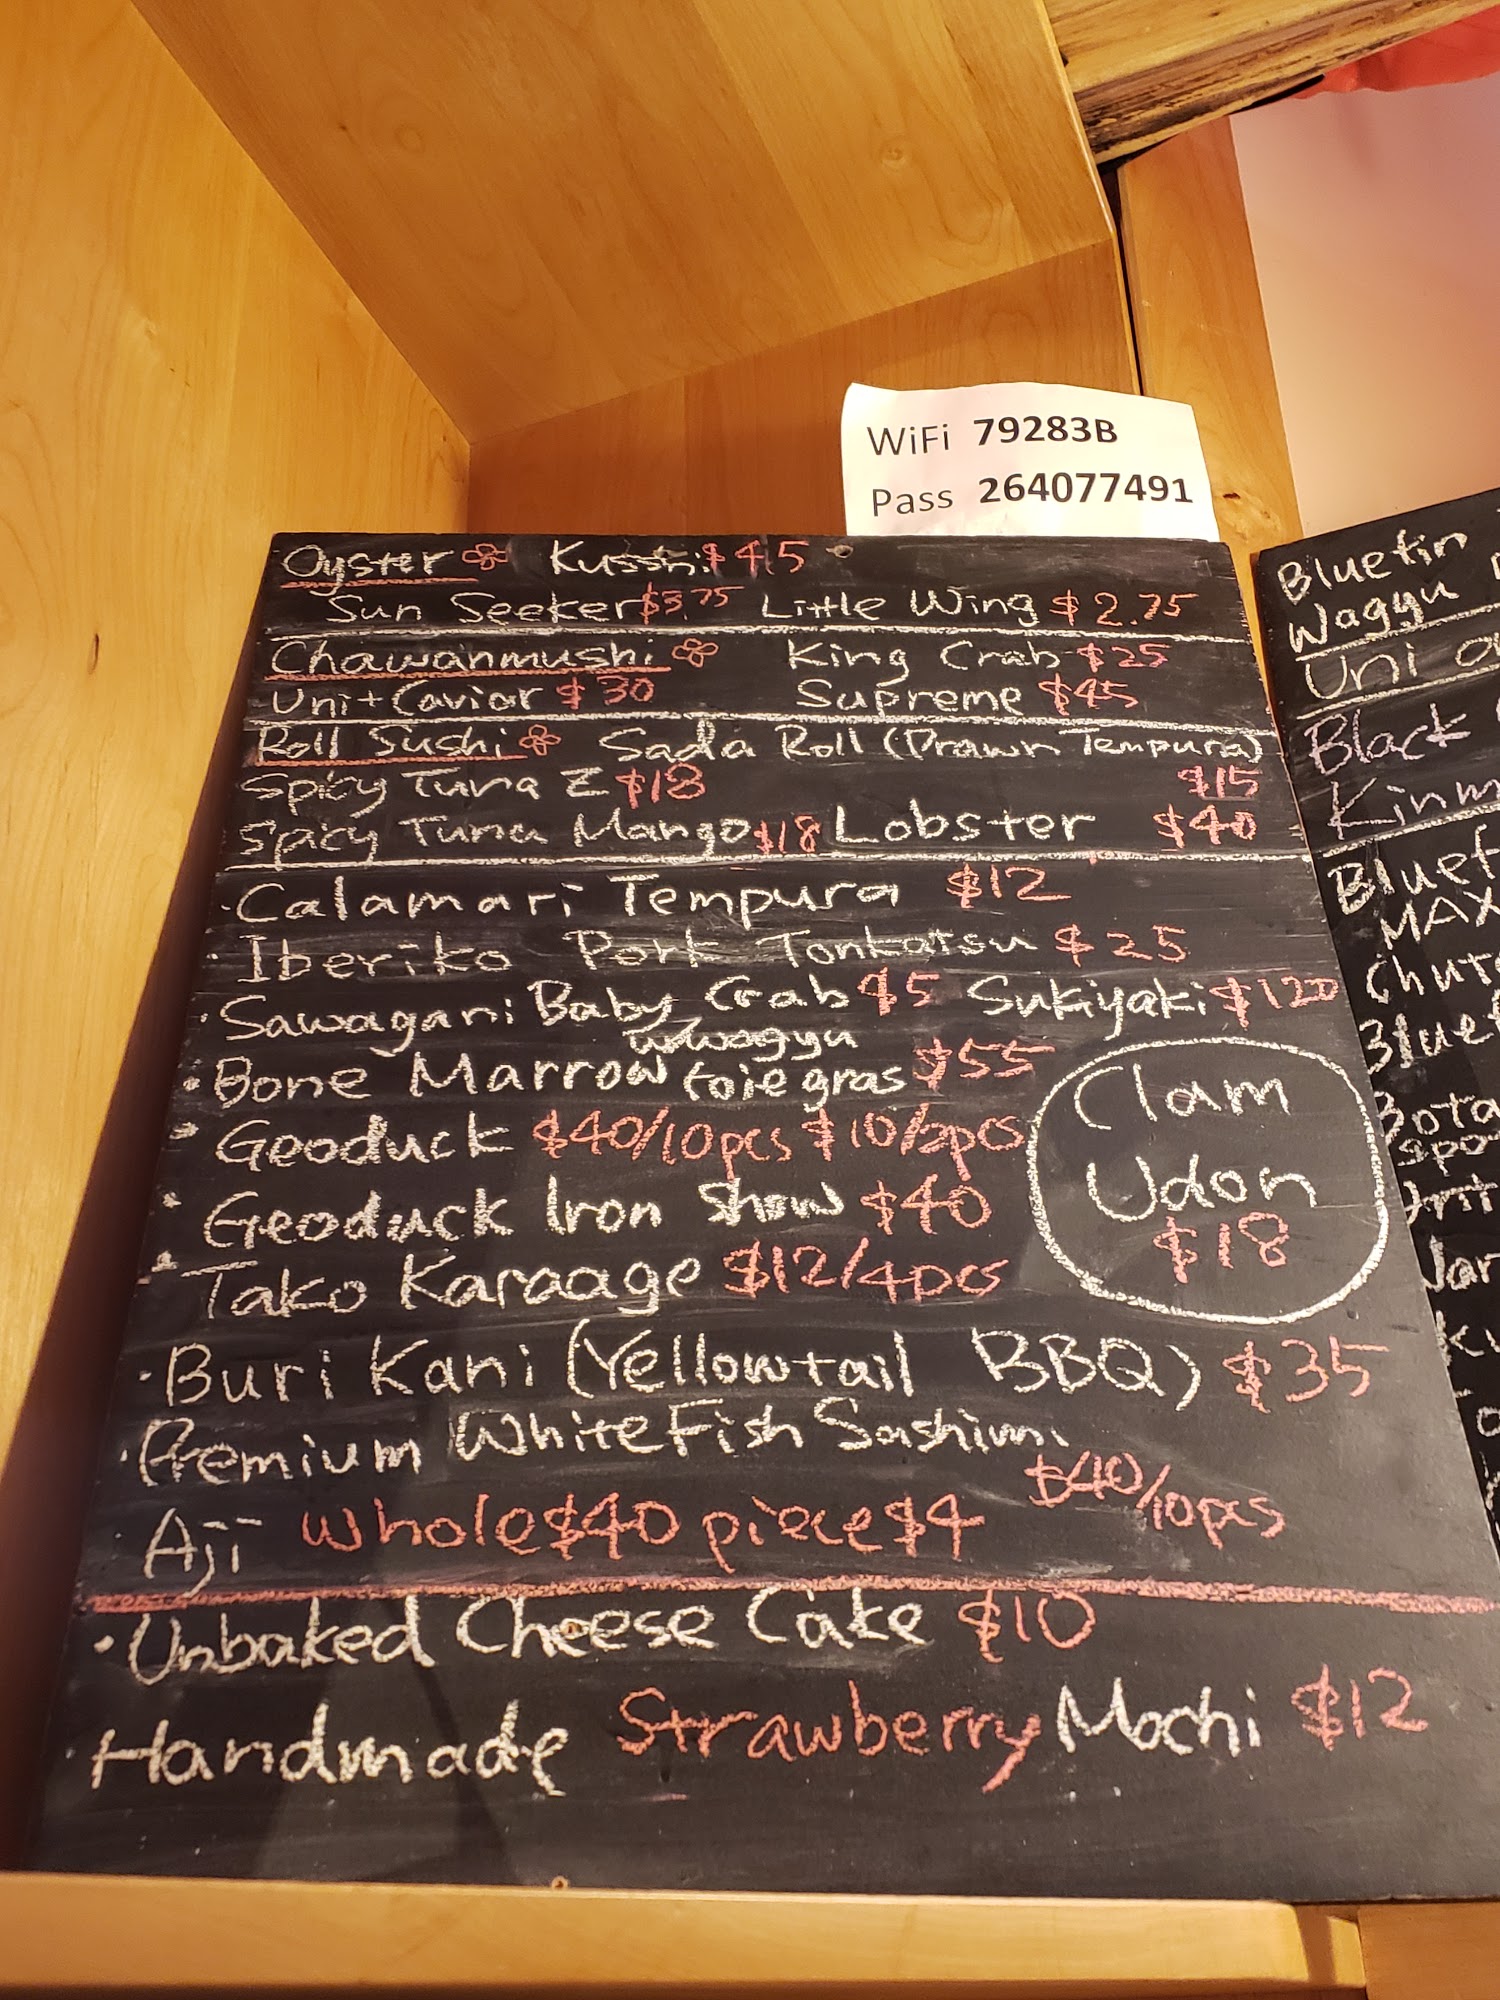 WiFi 79283B
Pass 264077491
Oyster Kusshi $4.5
Sun Seeker $3.75 Little Wing $2.75
Chawanmushi King Crab $25
Uni+Caviar $30 Supreme $45
Roll Sushi Sada Roll (Drawn Tempura)
Spicy Tuna Z $18 $15
Spicy Tuna Mango $18 Lobster $40
·Calamari Tempura $12
·Iberiko Pork Tonkatsu $25
·Sawagani Baby Crab $5 Sukiyaki $120
w wagyu
·Bone Marrow foie gras $55
·Geoduck $40/10pcs $10/2pcs
·Geoduck Iron Show $40
·Tako Karaage $12/4pcs
Clam
Udon
$18
·Buri Kani (Yellowtail BBQ) $35
·Premium White Fish Sashimi
$40/10pcs
·Aji Whole $40 piece $4
·Unbaked Cheese Cake $10
·Handmade Strawberry Mochi $12
Bluefin
Wagyu
Uni
Black
Kinm
Bluef
MAX
Chuto
Bluef
Bota
Spo